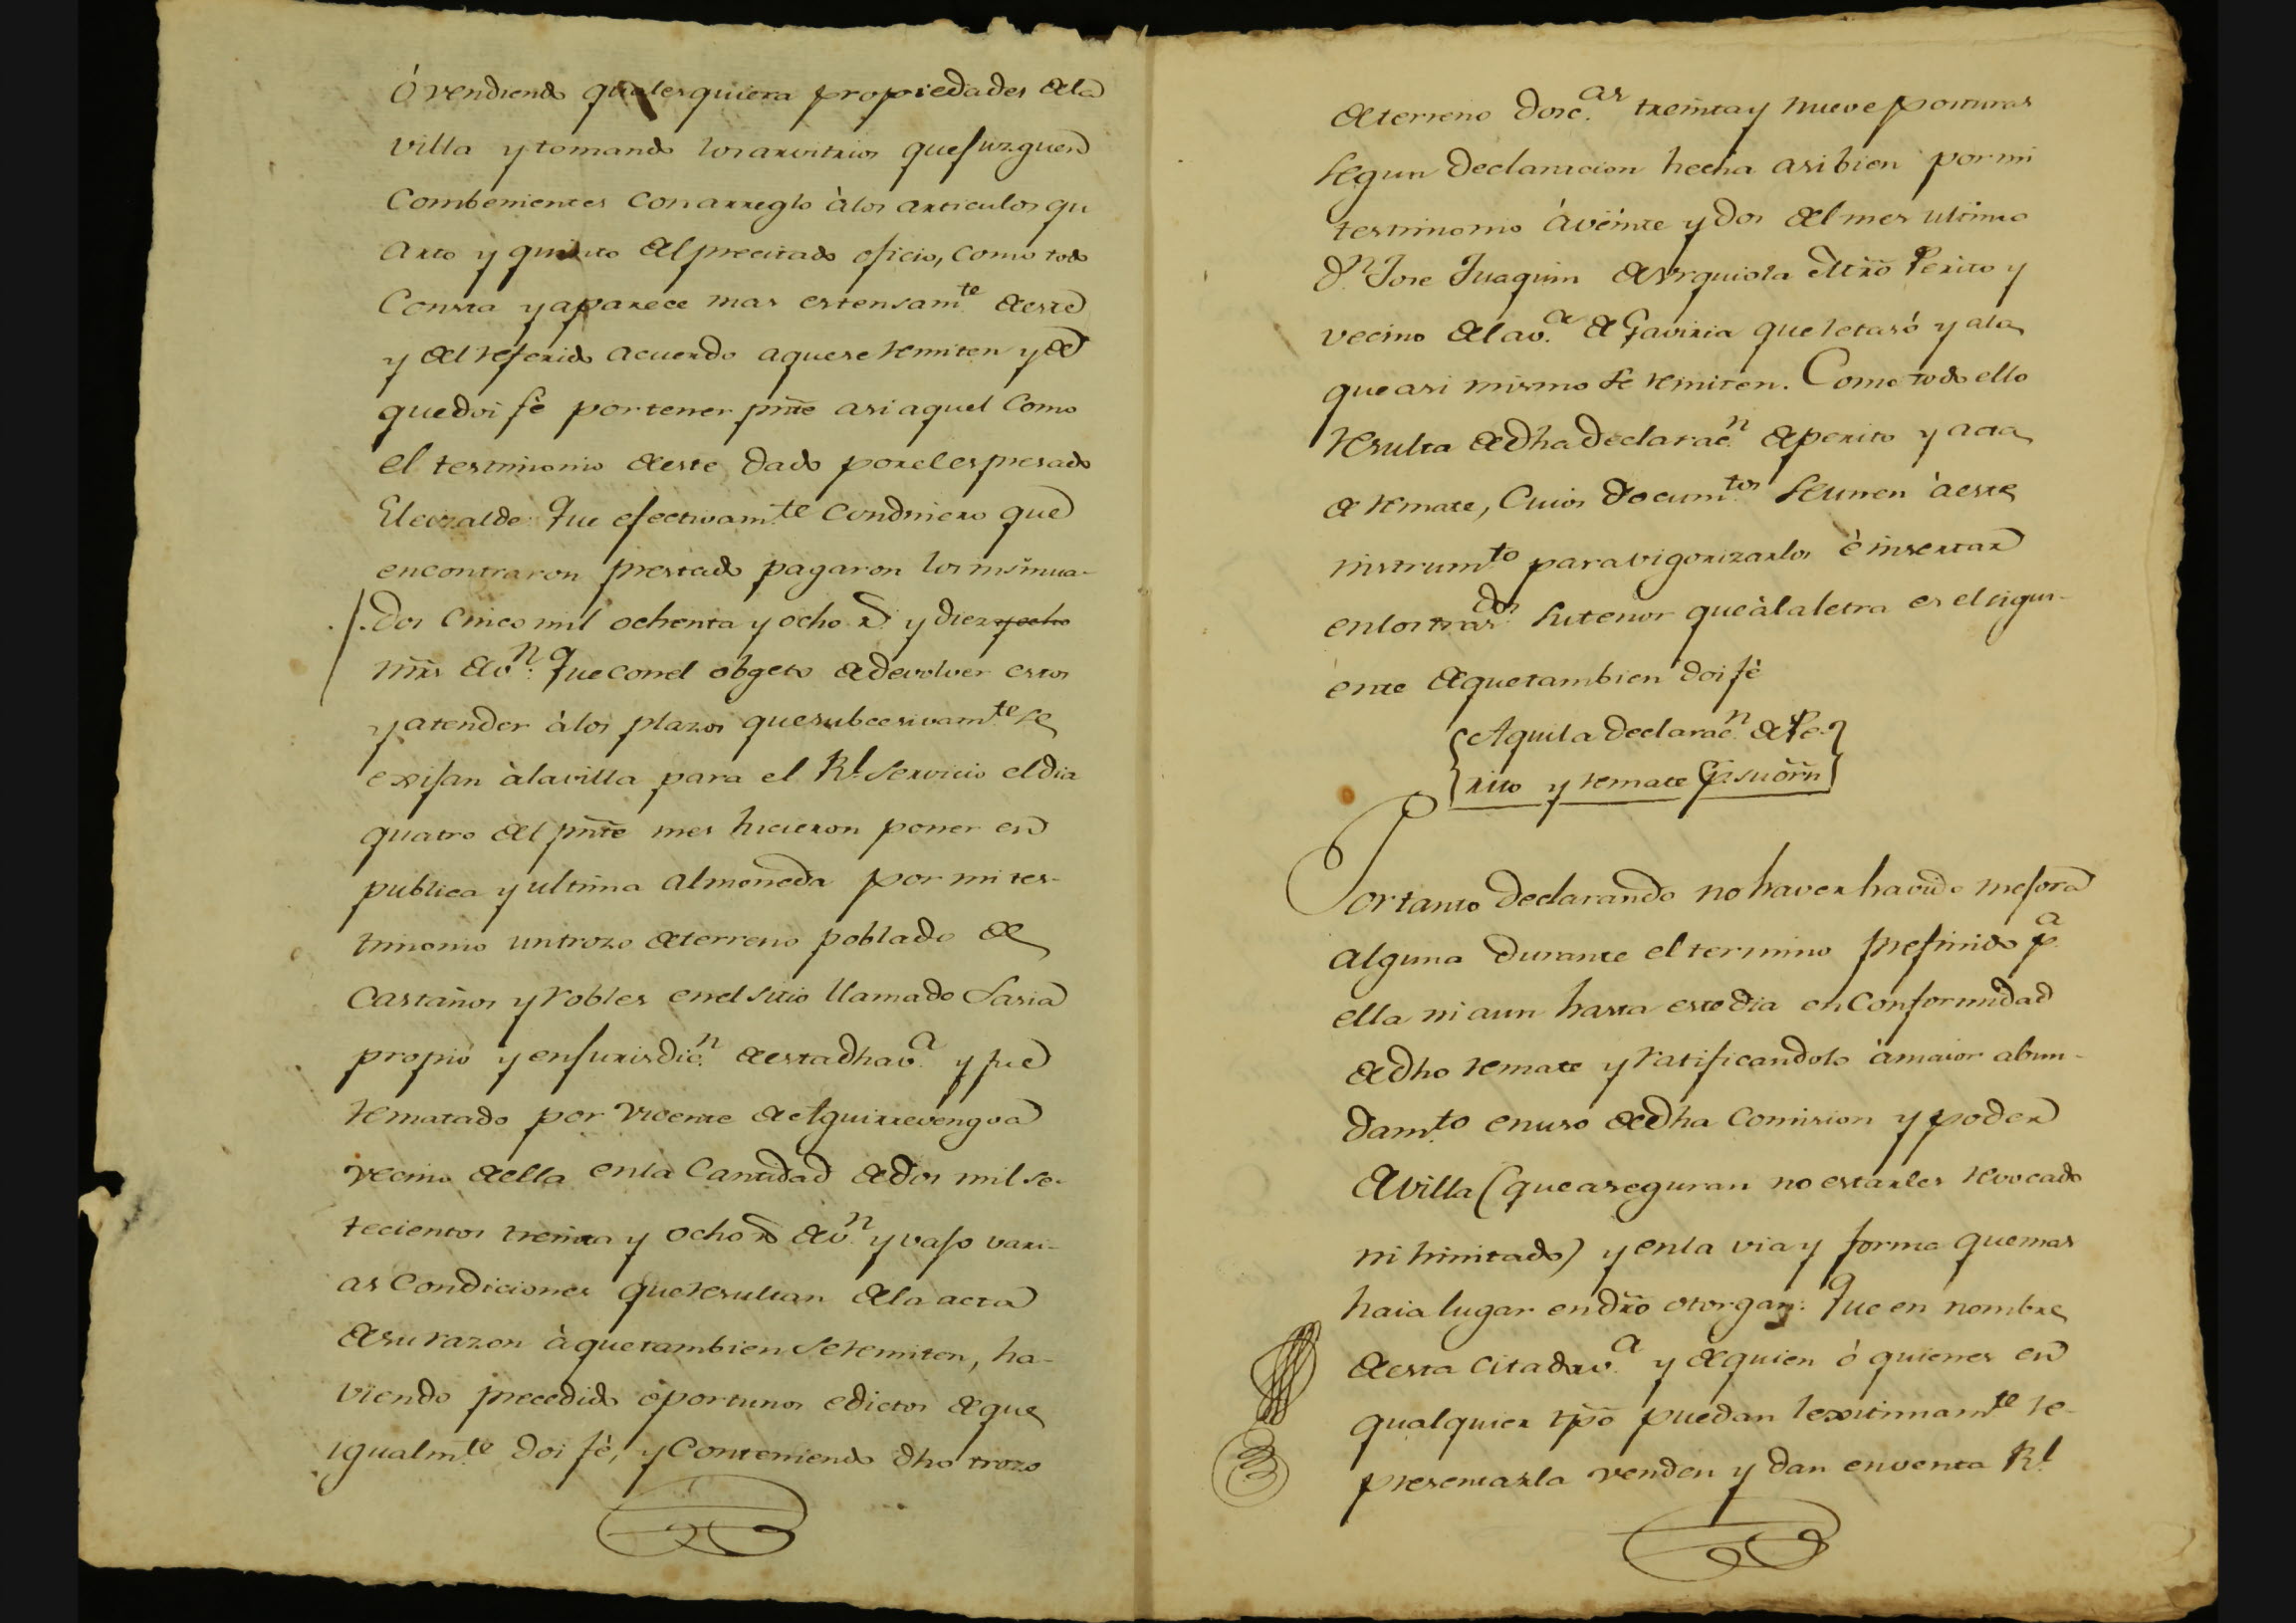 ó vendiendo qualesquiera propiedades de la
villa y tomando los arvitrios que juzguen
Combenientes con arreglo à los articulos qu
arto y quinto del precitado oficio, como todo
Consta y aparece mas estensam.te de este
y del referido acuerdo a que se remiten y de
que doi fè por tener pnte asi aquel como
el testimonio de este dado por el espresado
Elcoralde: Que efectivam.te con dinero que
encontraron prestado pagaron los insinua-
dos cinco mil ochenta y ocho r.s y diez y ocho
mrs de v.n: Que con el obgeto de devolver estos
y atender à los plazos que subcesivam.te se
exijan à la villa para el R.l servicio el dia
quatro del pnte mes hicieron poner en
publica y ultima almoneda por mi tes-
timonio un trozo de terreno poblado de
Castaños y robles en el sitio llamado Saria
propio y en jurisdic.n de esta dha v.a y fue
rematado por Vicente de Aguirrevengoa
vecino de ella en la Cantidad de dos mil se-
tecientos treinta y ocho r.s de v.n y vajo vari-
as Condiciones que resultan de la acta
de su razon à que tambien se remiten, ha-
viendo precedido oportunos edictos de que
igualm.te doi fè, y Conteniendo dho trozo
de terreno dosc.as treinta y nueve posturas
segun declaracion hecha asi bien por mi
testimonio à veinte y dos del mes ultimo
D.n Jose Juaquin de Urquiola Mtro Perito y
vecino de la v.a de Gaviria que le tasó y a la
que asi mismo se remiten. Como todo ello
resulta de dha declarac.n de perito y acta
de remate, Cuios documtos se unen à este
instrumto para vigorizarlos è insertar
en los tras.dos su tenor que à la letra es el sigui-
ente de que tambien doi fè
Aqui la declarac.n de Pe-
rito y remate P.r su orn
Por tanto declarando no haver havido mejora
alguna durante el termino prefinido p.a
ella ni aun hasta este dia en Conformidad
de dho remate y ratificandolo à maior abun-
damto en uso de dha Comision y poder
de villa (que aseguran no estarles revocado
ni limitado) y en la via y forma que mas
haia lugar en dro otorgan: Que en nombre
de esta citada v.a y de quien ó quienes en
qualquier tpo puedan lexitimam.te re-
presentarla venden y dan en venta R.l